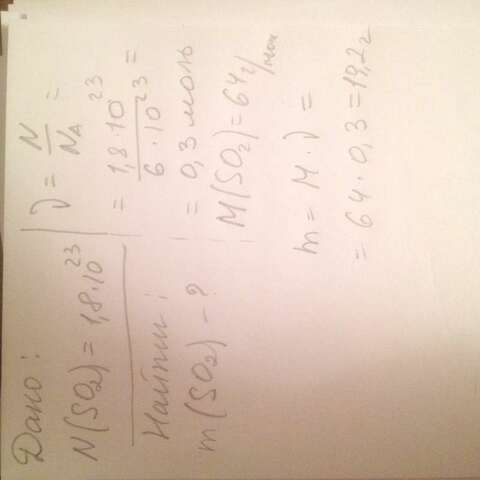 Дано:
N(SO₂) = 1,8·10²³
Найти:
m(SO₂) – ?
ν = N/Nₐ =
= 1,8·10²³/6·10²³ =
= 0,3 моль
M(SO₂) = 64 г/моль
m = M·ν =
= 64·0,3 = 19,2 г